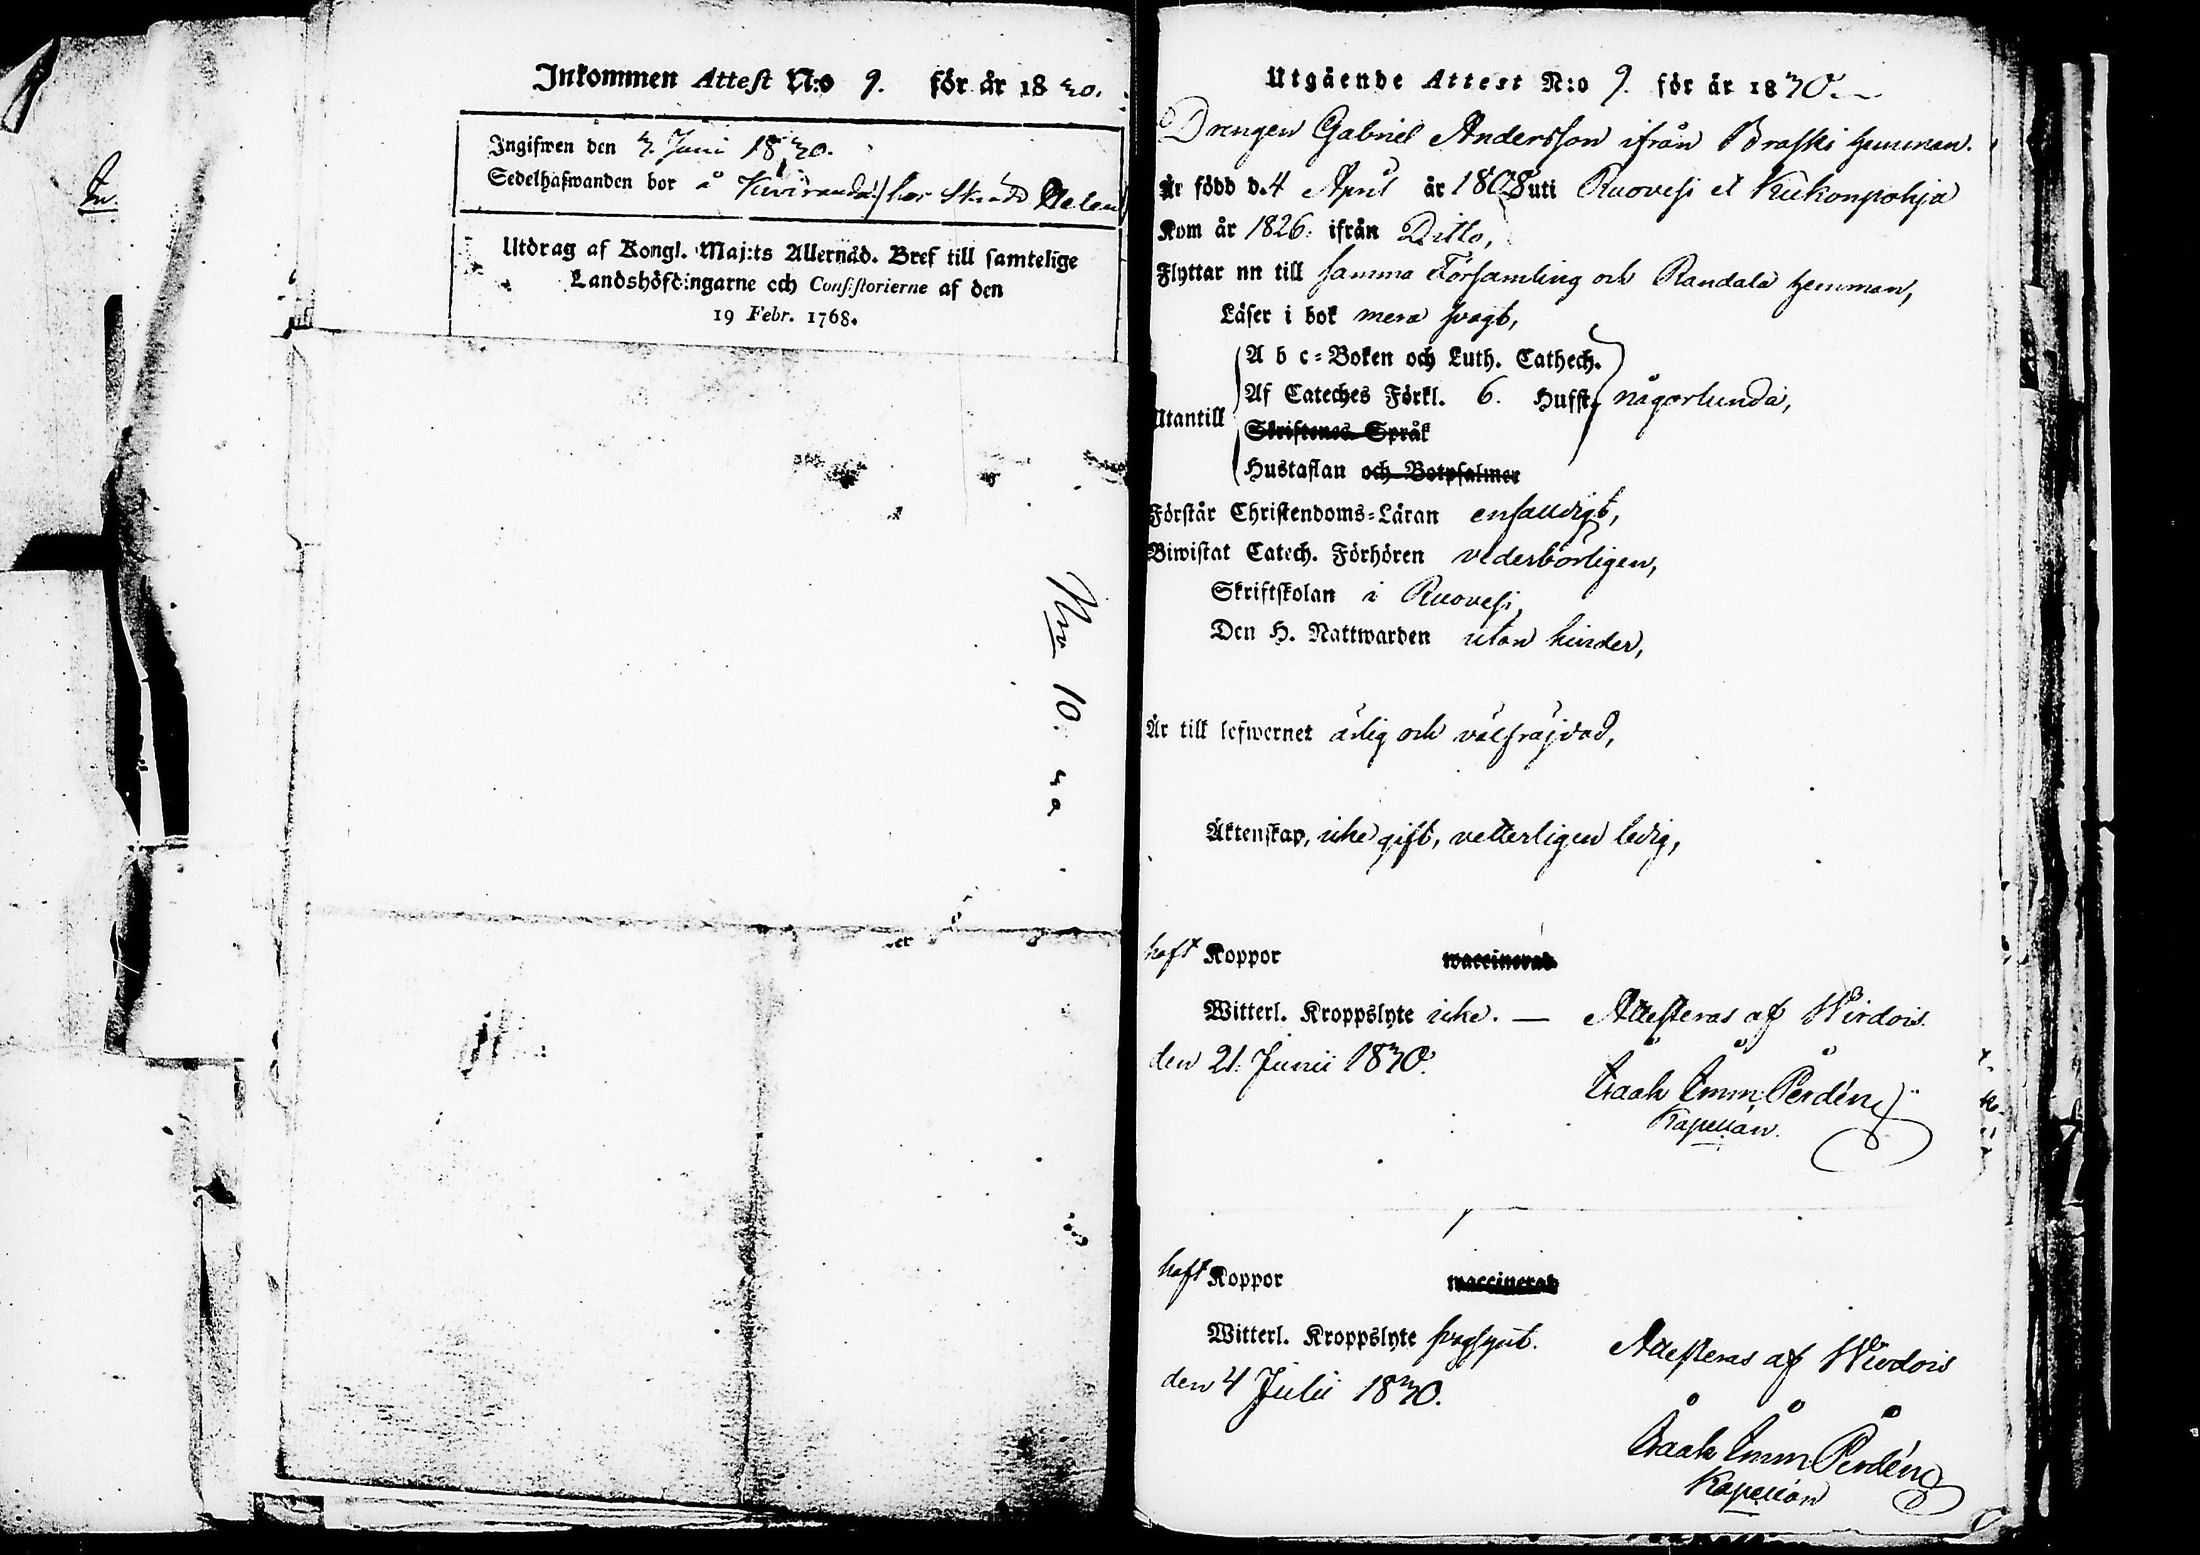 Inkommen Attest N:o 9. för år 1830.
Ingifwen den 3. Juni 1830.
Sedelhafwanden bor å Kiviranda hos
Utdrag af Kongl. Maj:ts Allernåd. Bref till samtelige
Landshöfdingarne och Consistorierne af den
19 Febr. 1768.
Nro 10.
Utgående Attest N:o 9. för år 1830.
Drengen Gabriel Andersson ifrån Braski hemman.
Är född d. 4 April år 1808 uti Ruovesi et Kukonpohja
Kom år 1826. ifrån Ditto,
Flyttar nn till samma Församling och Randala hemman,
Läser i bok mera svagt,
A b c=Boken och Luth. Cathech.
Af Cateches Förkl. 6. Hufst. någorlunda,
Utantill
Skriftenes Språk
Hustaflan och Botpsalmer
Förstår Christendoms=Läran enfaldigt,
Biwistat Catech. Förhören vederbörligen,
Skriftskolan i Ruovesi,
Den H. Nattwarden utan hinder,
Är till lefwernet ärlig och välfräjdad,
Äktenskap, icke gift, vetterligen ledig,
haft Koppor waccinerad
Witterl. Kroppslyte icke. — Attesteras af Wirdois.
den 21. Junii 1830.
Isaak Imm. Perdén
Kapellan.
haft Koppor waccinerad
Witterl. Kroppslyte svagsynt. Attesteras af Wirdois
den 4 Julii 1830.
Isaak Imm. Perdén
Kapellan